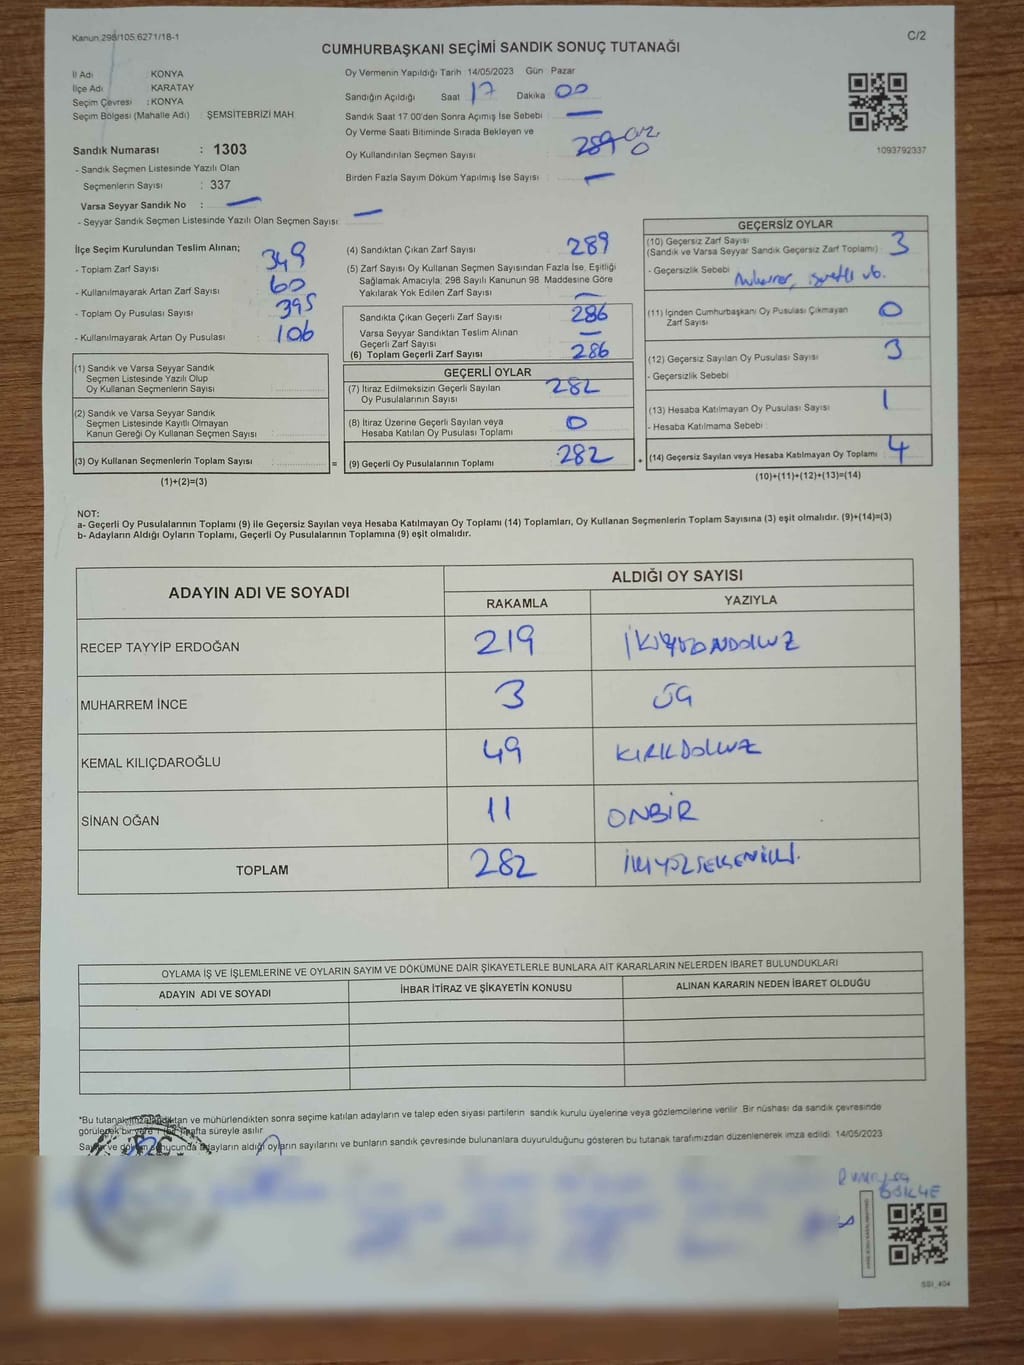 Kanun 298/105.6271/18-1
C/2
CUMHURBAŞKANI SEÇİMİ SANDIK SONUÇ TUTANAĞI
İl Adı : KONYA
İlçe Adı : KARATAY
Seçim Çevresi : KONYA
Seçim Bölgesi (Mahalle Adı) : ŞEMSİTEBRİZİ MAH
Sandık Numarası : 1303
- Sandık Seçmen Listesinde Yazılı Olan
Seçmenlerin Sayısı : 337
Varsa Seyyar Sandık No : —
- Seyyar Sandık Seçmen Listesinde Yazılı Olan Seçmen Sayısı : —
Oy Vermenin Yapıldığı Tarih 14/05/2023 Gün Pazar
Sandığın Açıldığı Saat 17 Dakika 00
Sandık Saat 17:00'den Sonra Açımış İse Sebebi : —
Oy Verme Saati Bitiminde Sırada Bekleyen ve
Oy Kullandırılan Seçmen Sayısı : 289 0
Birden Fazla Sayım Döküm Yapılmış İse Sayısı : —
1093792337
İlçe Seçim Kurulundan Teslim Alınan;
- Toplam Zarf Sayısı : 349
- Kullanılmayarak Artan Zarf Sayısı : 60
- Toplam Oy Pusulası Sayısı : 395
- Kullanılmayarak Artan Oy Pusulası : 106
(1) Sandık ve Varsa Seyyar Sandık
Seçmen Listesinde Yazılı Olup
Oy Kullanan Seçmenlerin Sayısı :
(2) Sandık ve Varsa Seyyar Sandık
Seçmen Listesinde Kayıtlı Olmayan
Kanun Gereği Oy Kullanan Seçmen Sayısı :
(3) Oy Kullanan Seçmenlerin Toplam Sayısı :
(1)+(2)=(3)
(4) Sandıktan Çıkan Zarf Sayısı : 289
(5) Zarf Sayısı Oy Kullanan Seçmen Sayısından Fazla İse, Eşitliği
Sağlamak Amacıyla, 298 Sayılı Kanunun 98. Maddesine Göre
Yakılarak Yok Edilen Zarf Sayısı : —
Sandıkta Çıkan Geçerli Zarf Sayısı : 286
Varsa Seyyar Sandıktan Teslim Alınan
Geçerli Zarf Sayısı : —
(6) Toplam Geçerli Zarf Sayısı : 286
GEÇERLİ OYLAR
(7) İtiraz Edilmeksizin Geçerli Sayılan
Oy Pusulalarının Sayısı : 282
(8) İtiraz Üzerine Geçerli Sayılan veya
Hesaba Katılan Oy Pusulası Toplamı : 0
= (9) Geçerli Oy Pusulalarının Toplamı : 282
GEÇERSİZ OYLAR
(10) Geçersiz Zarf Sayısı : 3
(Sandık ve Varsa Seyyar Sandık Geçersiz Zarf Toplamı)
- Geçersizlik Sebebi : işaretli vb.
(11) İçinden Cumhurbaşkanı Oy Pusulası Çıkmayan
Zarf Sayısı : 0
(12) Geçersiz Sayılan Oy Pusulası Sayısı : 3
- Geçersizlik Sebebi :
(13) Hesaba Katılmayan Oy Pusulası Sayısı : 1
- Hesaba Katılmama Sebebi :
+ (14) Geçersiz Sayılan veya Hesaba Katılmayan Oy Toplamı : 4
(10)+(11)+(12)+(13)=(14)
NOT:
a- Geçerli Oy Pusulalarının Toplamı (9) ile Geçersiz Sayılan veya Hesaba Katılmayan Oy Toplamı (14) Toplamları, Oy Kullanan Seçmenlerin Toplam Sayısına (3) eşit olmalıdır. (9)+(14)=(3)
b- Adayların Aldığı Oyların Toplamı, Geçerli Oy Pusulalarının Toplamına (9) eşit olmalıdır.
ADAYIN ADI VE SOYADI
ALDIĞI OY SAYISI
RAKAMLA YAZIYLA
RECEP TAYYİP ERDOĞAN 219 İKİYÜZONDOKUZ
MUHARREM İNCE 3 ÜÇ
KEMAL KILIÇDAROĞLU 49 KIRKDOKUZ
SİNAN OĞAN 11 ONBİR
TOPLAM 282 İKİYÜZSEKSENİKİ.
OYLAMA İŞ VE İŞLEMLERİNE VE OYLARIN SAYIM VE DÖKÜMÜNE DAİR ŞİKAYETLERLE BUNLARA AİT KARARLARIN NELERDEN İBARET BULUNDUKLARI
ADAYIN ADI VE SOYADI
İHBAR İTİRAZ VE ŞİKAYETİN KONUSU
ALINAN KARARIN NEDEN İBARET OLDUĞU
*Bu tutanak imzalandıktan ve mühürlendikten sonra seçime katılan adayların ve talep eden siyasi partilerin sandık kurulu üyelerine veya gözlemcilerine verilir. Bir nüshası da sandık çevresinde
görülecek bir yere 1 (bir) hafta süreyle asılır.
Sayım ve döküm sonucunda adayların aldığı oyların sayılarını ve bunların sandık çevresinde bulunanlara duyurulduğunu gösteren bu tutanak tarafımızdan düzenlenerek imza edildi. 14/05/2023